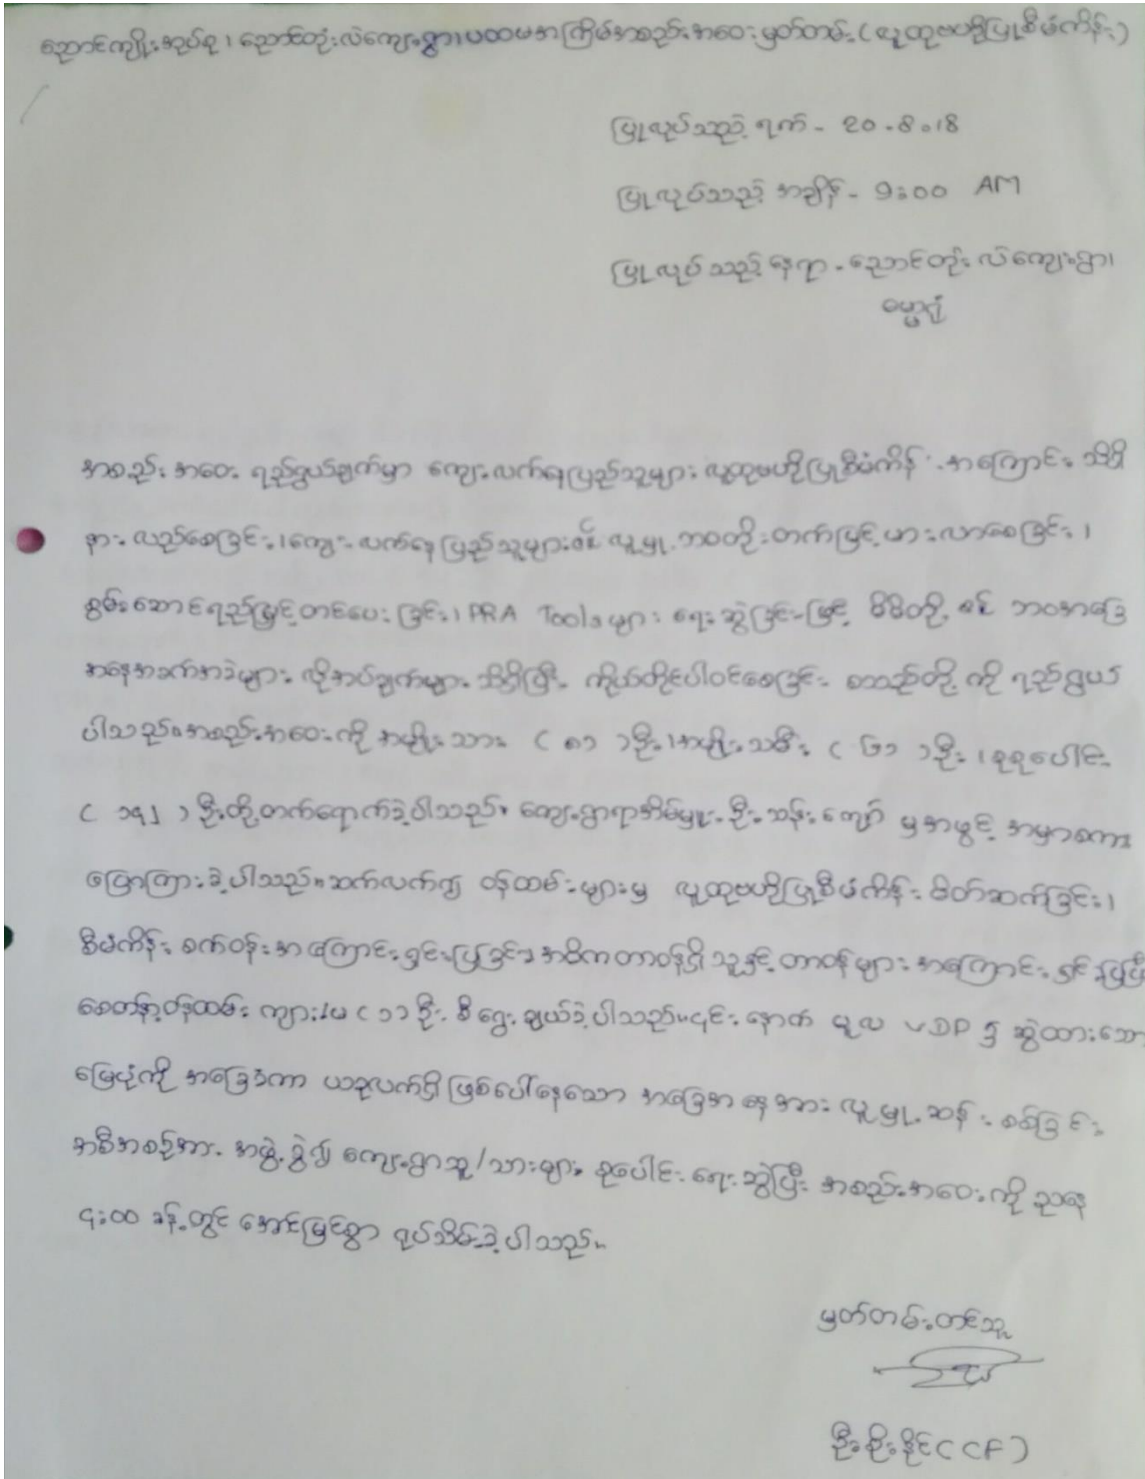 ညောင်ကျိုးအုပ်စု၊ ညောင်တုံးလဲကျေးရွာ၊ ပထမအကြိမ်အစည်းအဝေးမှတ်တမ်း (လူထုဗဟိုပြုစီမံကိန်း)
ပြုလုပ်သည့် ရက် - 20.8.18
ပြုလုပ်သည့် အချိန် - 9:00 AM
ပြုလုပ်သည့် နေရာ - ညောင်တုံးလဲကျေးရွာ၊
ဓမ္မာရုံ
အစည်းအဝေး ရည်ရွယ်ချက်မှာ ကျေးလက်နေပြည်သူများ လူထုဗဟိုပြုစီမံကိန်း အကြောင်း သိရှိ
နားလည်စေခြင်း၊ ကျေးလက်နေပြည်သူများ၏ လူမှုဘဝတိုးတက်မြင့်မားလာစေခြင်း၊
စွမ်းဆောင်ရည်မြှင့်တင်ပေးခြင်း၊ PRA Tools များ ရေးဆွဲခြင်းဖြင့် မိမိတို့၏ ဘဝအခြေ
အနေအခက်အခဲများ လိုအပ်ချက်များ သိရှိပြီး ကိုယ်တိုင်ပါဝင်စေခြင်း စသည်တို့ကို ရည်ရွယ်
ပါသည်။ အစည်းအဝေးကို အမျိုးသား ( ၈၁ ) ဦး၊ အမျိုးသမီး ( ၆၁ ) ဦး၊ စုစုပေါင်း
( ၁၄၂ ) ဦးတို့တက်ရောက်ခဲ့ပါသည်။ ကျေးရွာရာအိမ်မှူး ဦးသန်းကျော် မှအဖွင့် အမှာစကား
ပြောကြားခဲ့ပါသည်။ ဆက်လက်၍ ဝန်ထမ်းများမှ လူထုဗဟိုပြုစီမံကိန်း မိတ်ဆက်ခြင်း၊
စီမံကိန်း စက်ဝန်းအကြောင်းရှင်းပြခြင်း၊ အဓိကတာဝန်ရှိသူနှင့် တာဝန်များ အကြောင်း ရှင်းပြပြီး
စေတနာ့ဝန်ထမ်း ကျား/မ ( ၁၁ ) ဦး စီရွေးချယ်ခဲ့ပါသည်။ ၎င်းနောက် မူလ VDP ၌ ဆွဲထားသော
မြေပုံကို အခြေခံကာ ယခုလက်ရှိ ဖြစ်ပေါ်နေသော အခြေအနေအား လူမှုဆန်းစစ်ခြင်း
အစီအစဉ်အား အဖွဲ့ခွဲ၍ ကျေးရွာသူ/သားများ စုပေါင်းရေးဆွဲပြီး အစည်းအဝေးကို ညနေ
၄:၀၀ ခန့်တွင် အောင်မြင်စွာ ရုပ်သိမ်းခဲ့ပါသည်။
မှတ်တမ်းတင်သူ
ဦးစိုးနိုင် (CF)